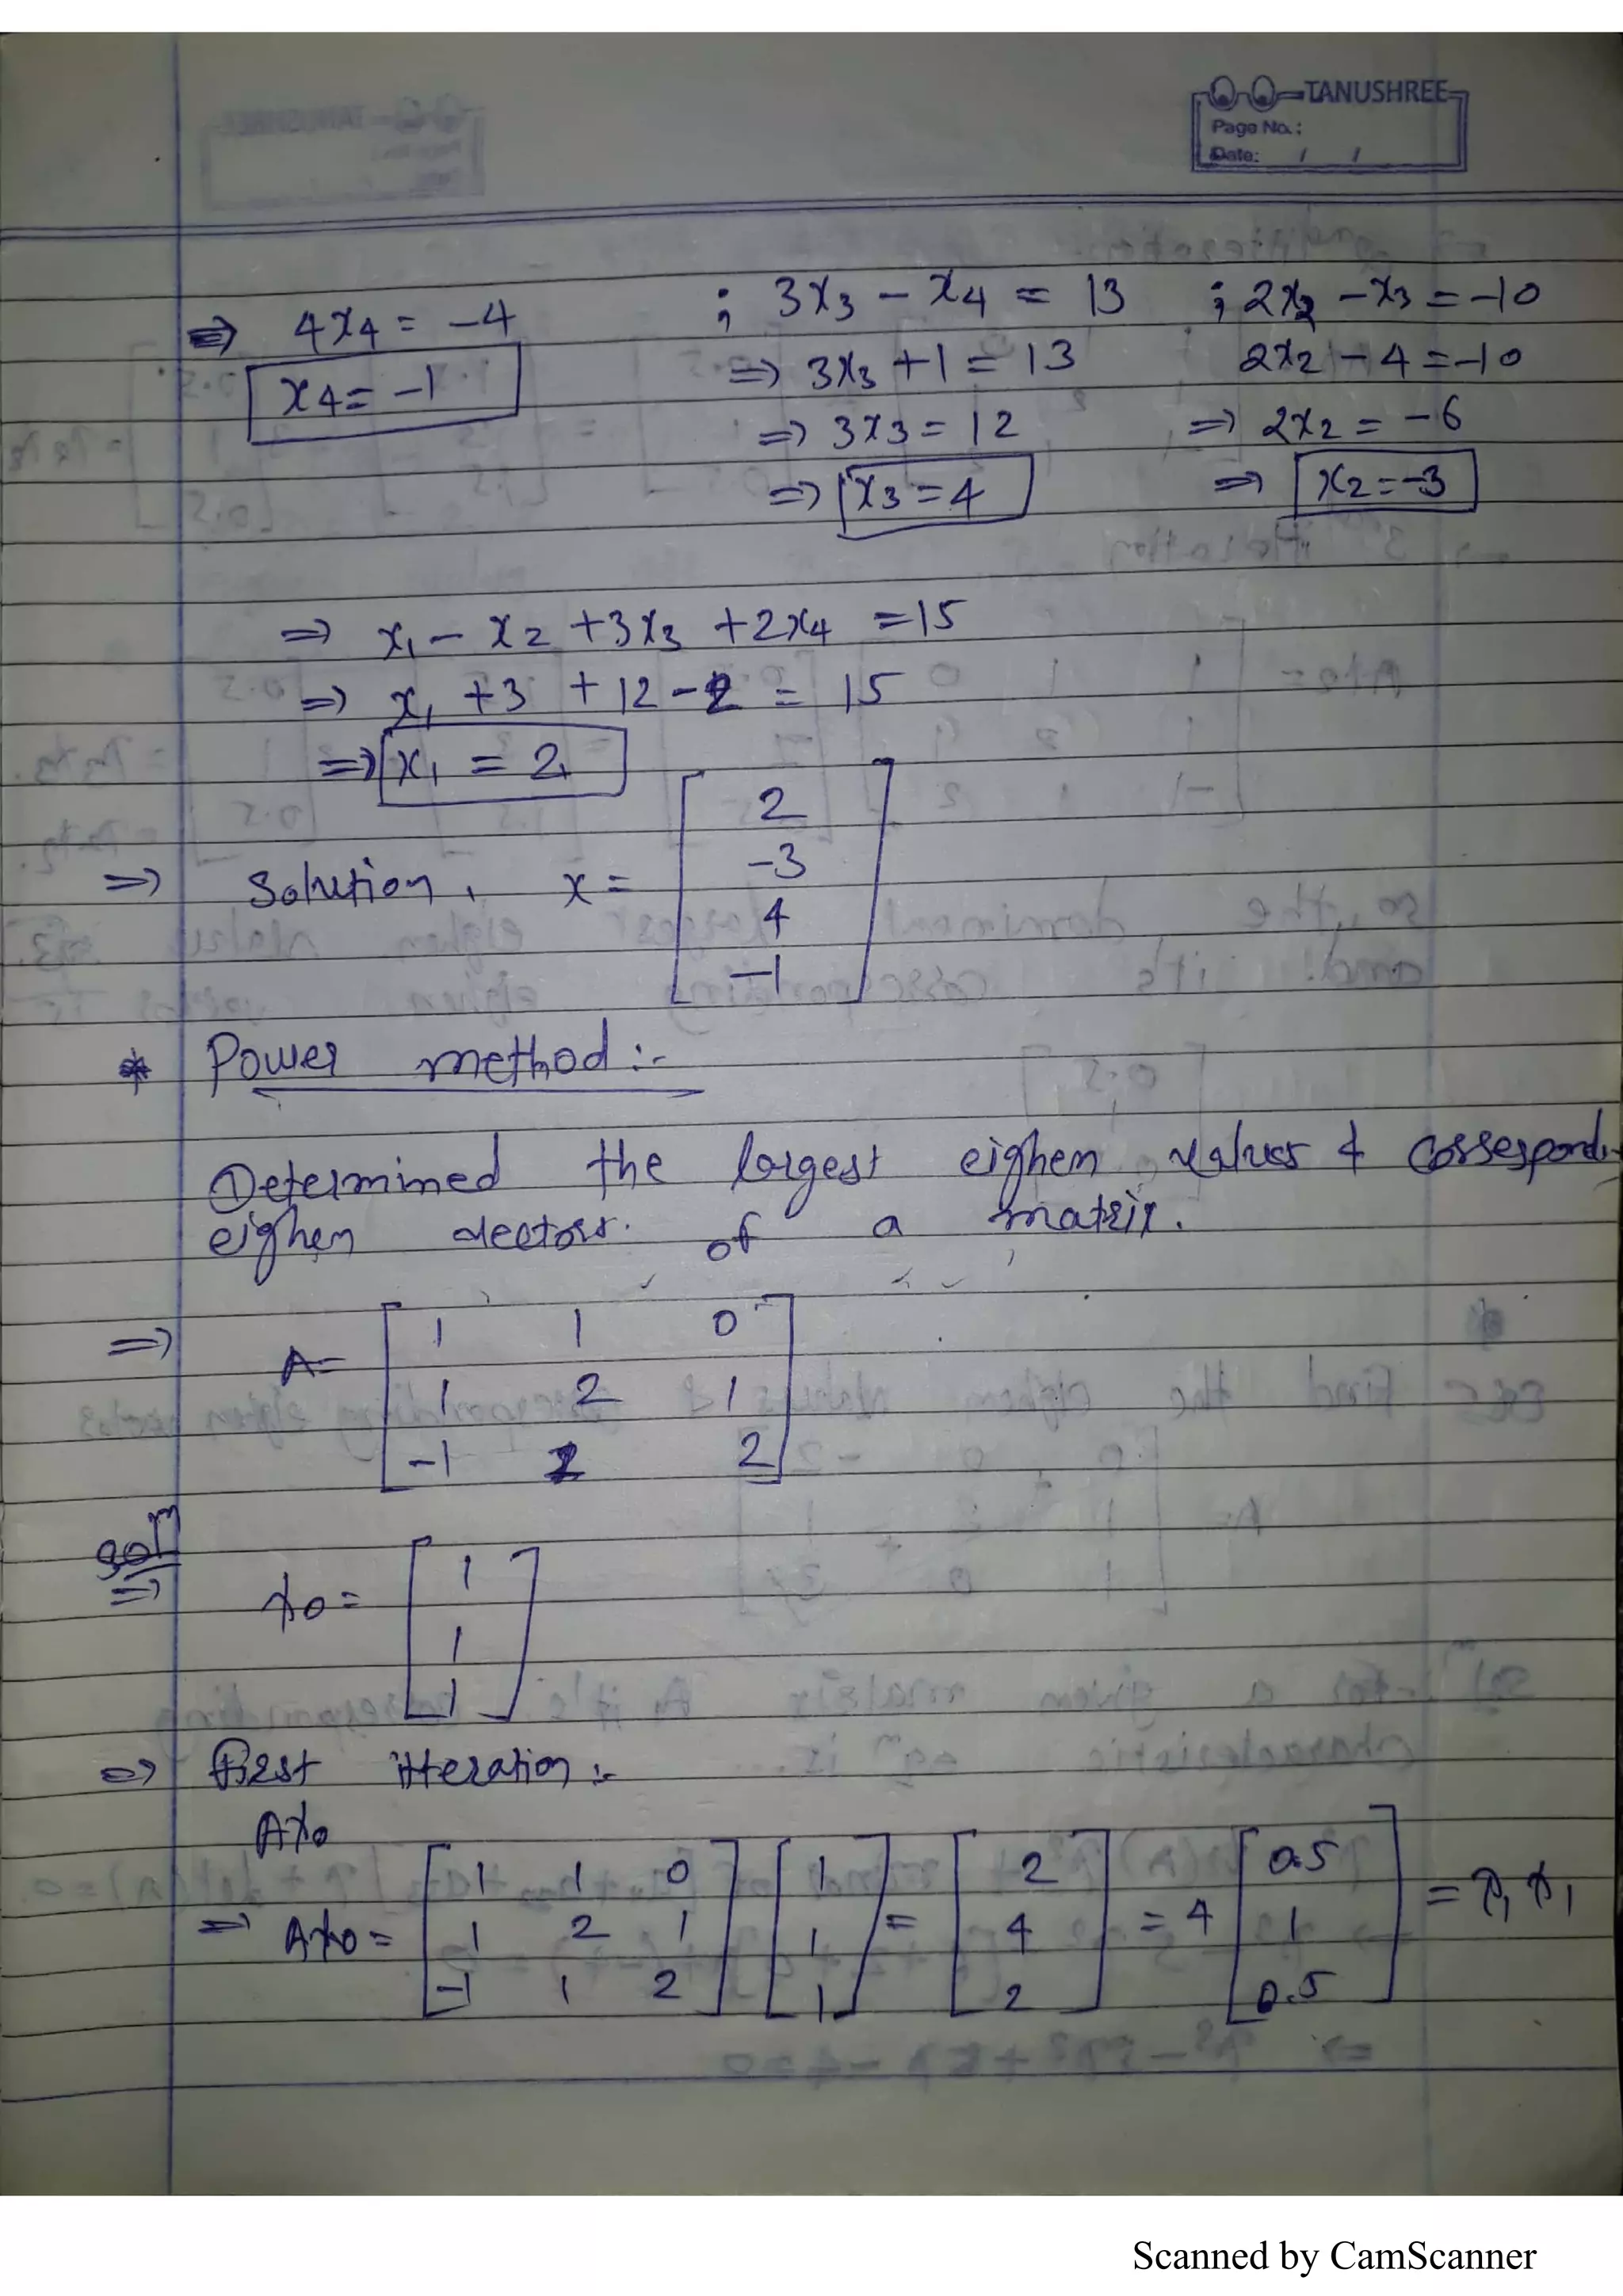 TANUSHREE
Page No.:
Date: / /
⇒ 4x4 = -4 ; 3x3 - x4 = 13 ; 2x2 - x3 = -10
x4 = -1 ⇒ 3x3 + 1 = 13 2x2 - 4 = -10
⇒ 3x3 = 12 ⇒ 2x2 = -6
⇒ x3 = 4 ⇒ x2 = -3
⇒ x1 - x2 + 3x3 + 2x4 = 15
⇒ x1 + 3 + 12 - 2 = 15
⇒ x1 = 2
⇒ Solution, x = [2
-3
4
-1]
* Power method :-
Determined the largest eighen values & correspondi
eighen vectors. of a matrix.
⇒ A = [1 1 0
1 2 1
-1 1 2]
solⁿ
⇒ x0 = [1
1
1]
⇒ First itteration :-
Ax0
⇒ Ax0 = [1 1 0 [1 = [2 = 4 [0.5 = λ1 x1
1 2 1 1 4 1
-1 1 2] 1] 2] 0.5]
Scanned by CamScanner